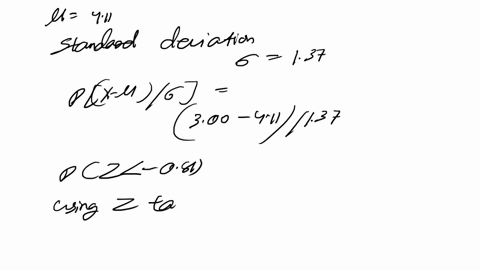 μ = 4.11
standard deviation
σ = 1.37
P[(x-μ)/σ] =
(3.00 - 4.11)/1.37
P(Z<-0.81)
using Z ta